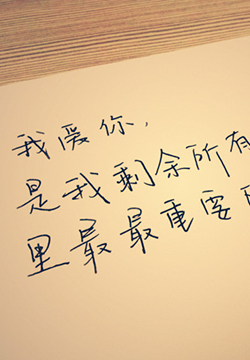 我爱你，
是我剩余所有
里最最重要